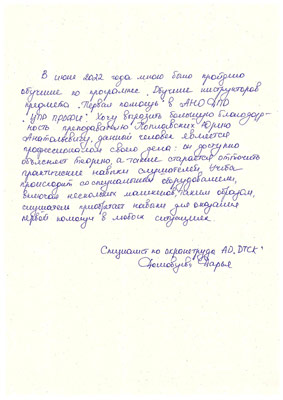 В июне 2022 года мною было пройдено
обучение по программе "Обучение инструкторов
предмета "Первая помощь" в АНО ДПО
"УПО ПРОФИ". Хочу выразить большую благодар-
ность преподавателю Юрию
Анатольевичу, данный человек является
профессионалом своего дела: он доступно
объясняет теорию, а также старается отточить
практические навыки слушателей. Учеба
происходит со специальным оборудованием,
включая нескольких манекенов. Таким образом,
слушатели приобретают навыки для оказания
первой помощи в любых ситуациях.
Специалист по охране труда АО "ДТСК"
Дарья